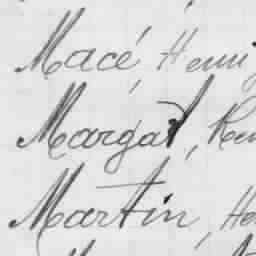 Macé, Henri
Margat, Ren
Martin, He